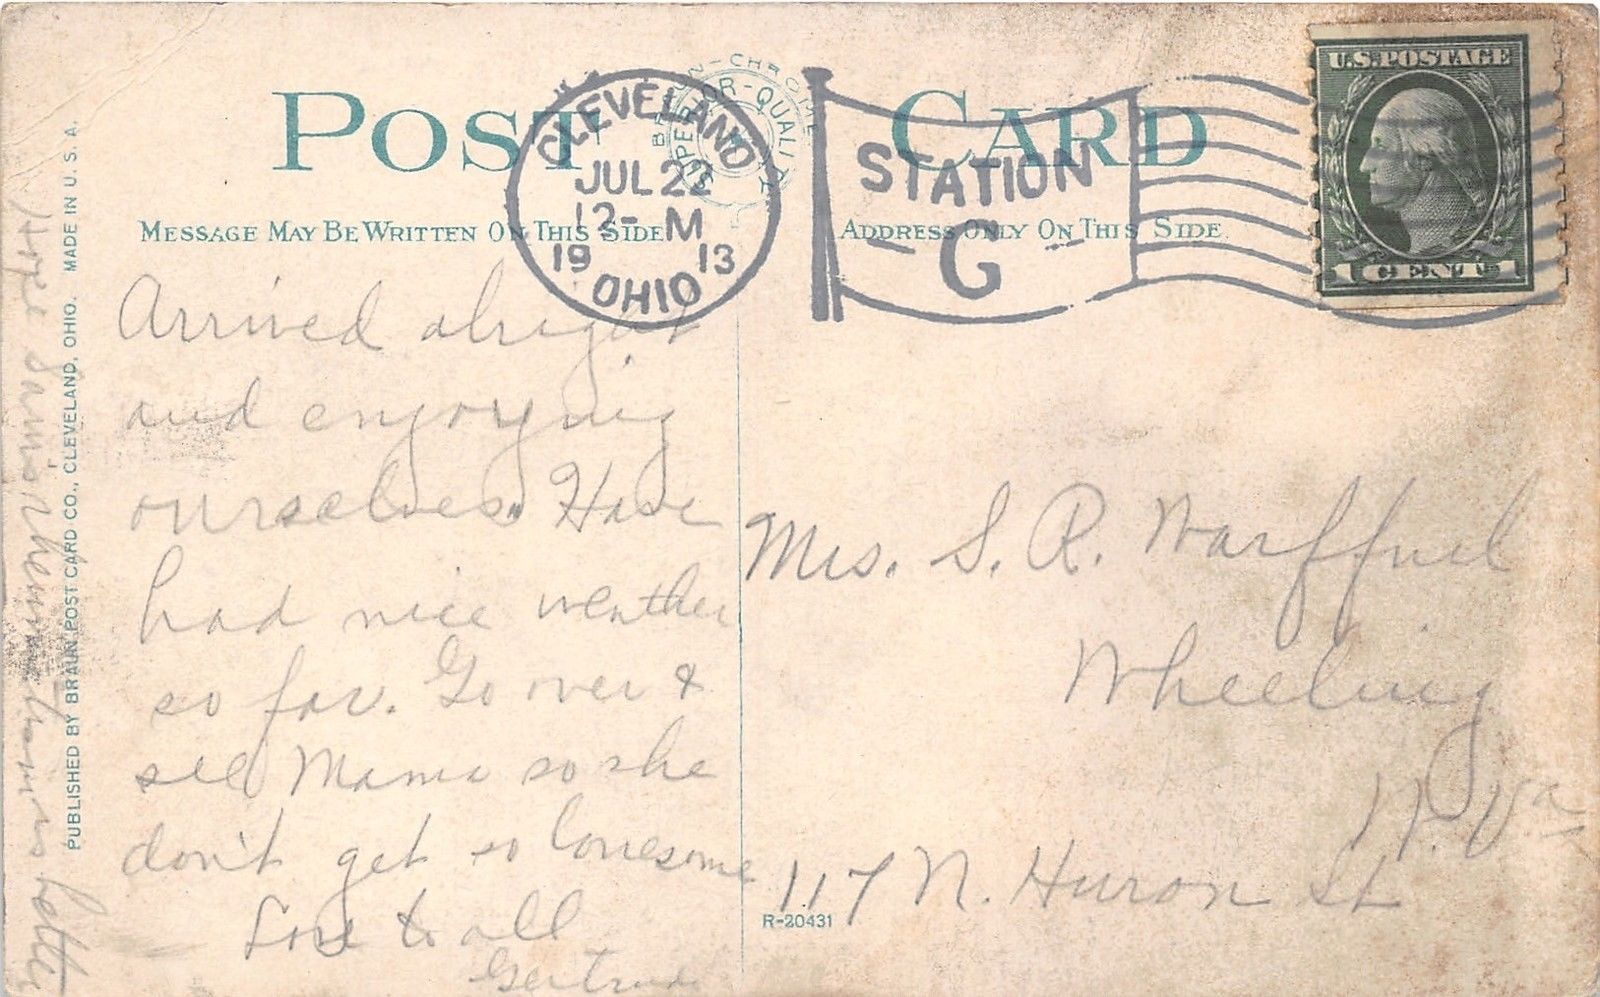 POST CARD
BRAUN-CHROME
SUPERIOR-QUALITY
MESSAGE MAY BE WRITTEN ON THIS SIDE
ADDRESS ONLY ON THIS SIDE
CLEVELAND
JUL 22
12-M
19 13
OHIO
STATION
- C -
U.S. POSTAGE
1 CENT 1
Arrived alright
and enjoying
ourselves. Have
had nice weather
so far. Go over &
see Mama so she
don't get so lonesome
Love to all
Gertrude
Hope is better
PUBLISHED BY BRAUN POST CARD CO., CLEVELAND, OHIO. MADE IN U.S.A.
Mrs. S. R. Warffuel
Wheeling
W. Va
117 N. Huron St
R-20431